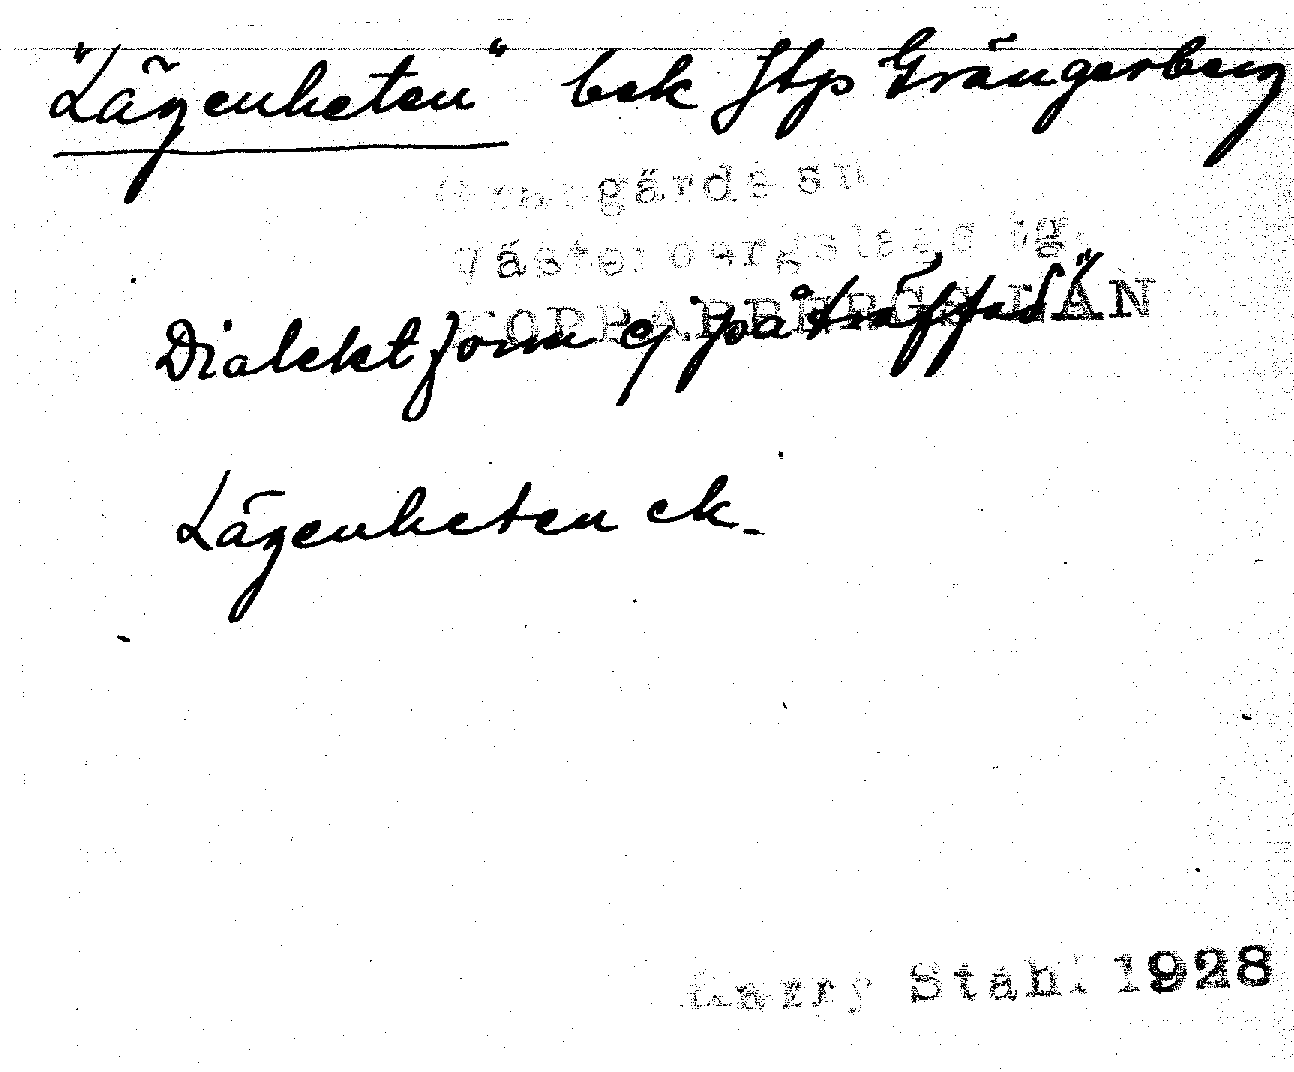 "Lägenheten" bek Jtp Grängesberg
Grangärde sn
Västerbergslags tg.
KOPPARBERGS LÄN
Dialektform ej påträffad"
Lägenheten ek.
Harry Ståhl 1928